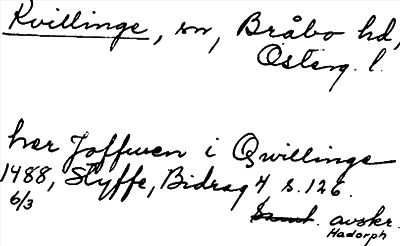 Kvillinge, sn, Bråbo hd,
Österg. l.
her Joffwen i Qwillinge
1488, Styffe, Bidrag 4 s. 126.
6/3 avskr.
Hadorph